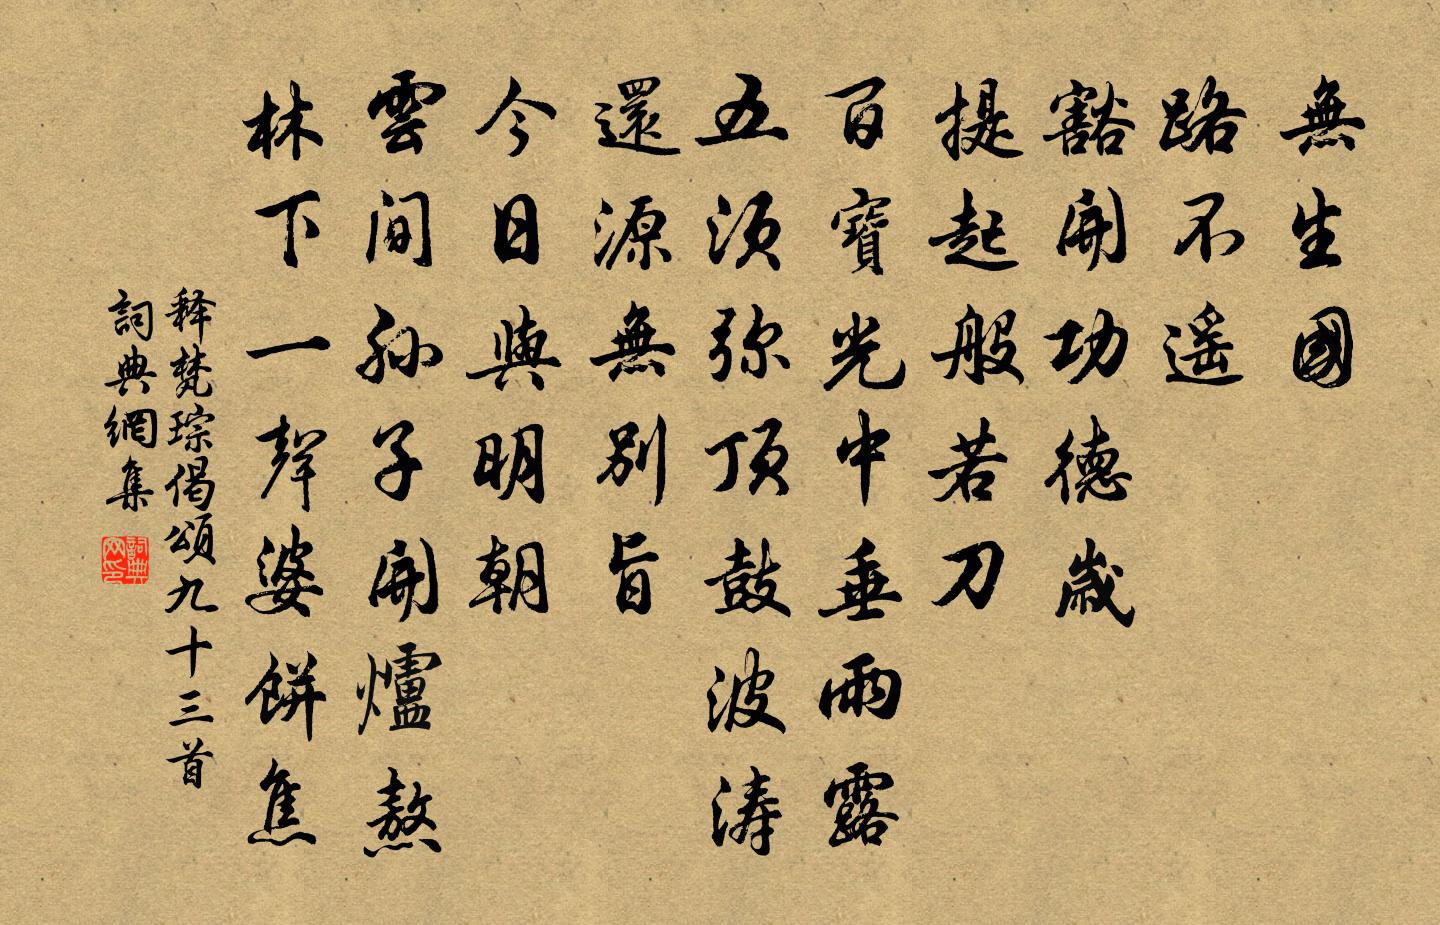 無生國
路不遥
豁開功德歲
提起般若刀
百寶光中垂雨露
五須弥頂鼓波涛
還源無別旨
今日與明朝
雲间孙子開爐熬
林下一聲婆餅焦
释梵琮偈頌九十三首
詞典網集
詞典
网印